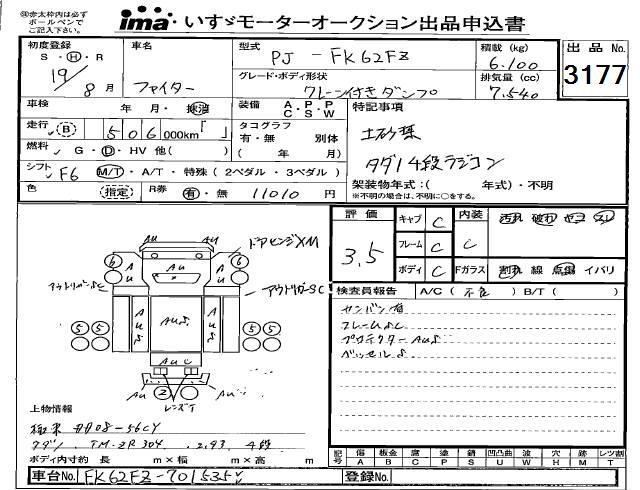 ㊟赤太枠内は必ず
ボールペンで
ご記入下さい。
ima いすゞモーターオークション出品申込書
初度登録
S・H・R
19
8月
車名
ファイター
型式
PJ-FK62FZ
グレード・ボディ形状
クレーン付きダンプ
積載 (kg)
6.100
排気量 (cc)
7.540
出品No.
3177
車検
年 月・抹消
装備
A・P・P
C S W
特記事項
走行 B
506000km「 」
タコグラフ
有・無 別体
( 年 月)
土砂禁
燃料 G・D・HV 他( )
タダノ4段ラジコン
シフト F6 M/T・A/T・特殊(2ペダル・3ペダル)
架装物年式:( 年式)・不明
※不明の場合は、不明に○をする。
色 (指定) R券 有・無 11010円
評価
3.5
キャブ C
フレーム C
ボディ C
内装
C
Fガラス
汚れ 破れ ヤコ スレ
割れ 線 点傷 イバリ
検査員報告 A/C(不良) B/T( )
カンバン有
フレームSC
プロテクターAUS
ベッセルS
Au
ドアヒンジXM
アウトリガーSC
アウトリガーSC
6
6
Au
Au
Au
AuS
AuS
AuS
5 5
5 5
AuC
Au
2
Au
レンズT
上物情報
極東 DD08-56CY
タダノ TM-ZR304 2.93 4段
ボディ内寸約 長 m×幅 m×高 m
記号 傷 板金 腐 塗 錆 凹凸曲 波 穴 跡 レツ割
A B C P S U W H M T
車台No. FK62FZ-701535
登録No.